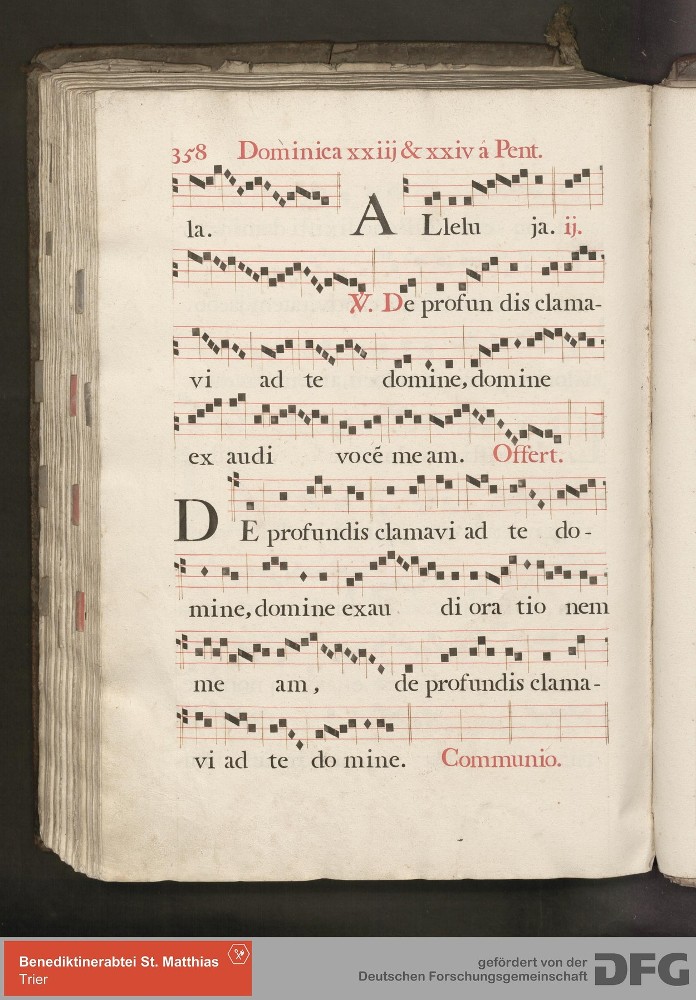 358 Dominica xxiij & xxiv á Pent.
la. ALlelu ja. ij.
℣. De profun dis clama-
vi ad te domine, domine
ex audi vocē me am. Offert.
DE profundis clamavi ad te do-
mine, domine exau di ora tio nem
me am, de profundis clama-
vi ad te do mine. Communio.
Benediktinerabtei St. Matthias
Trier
gefördert von der
Deutschen Forschungsgemeinschaft
DFG